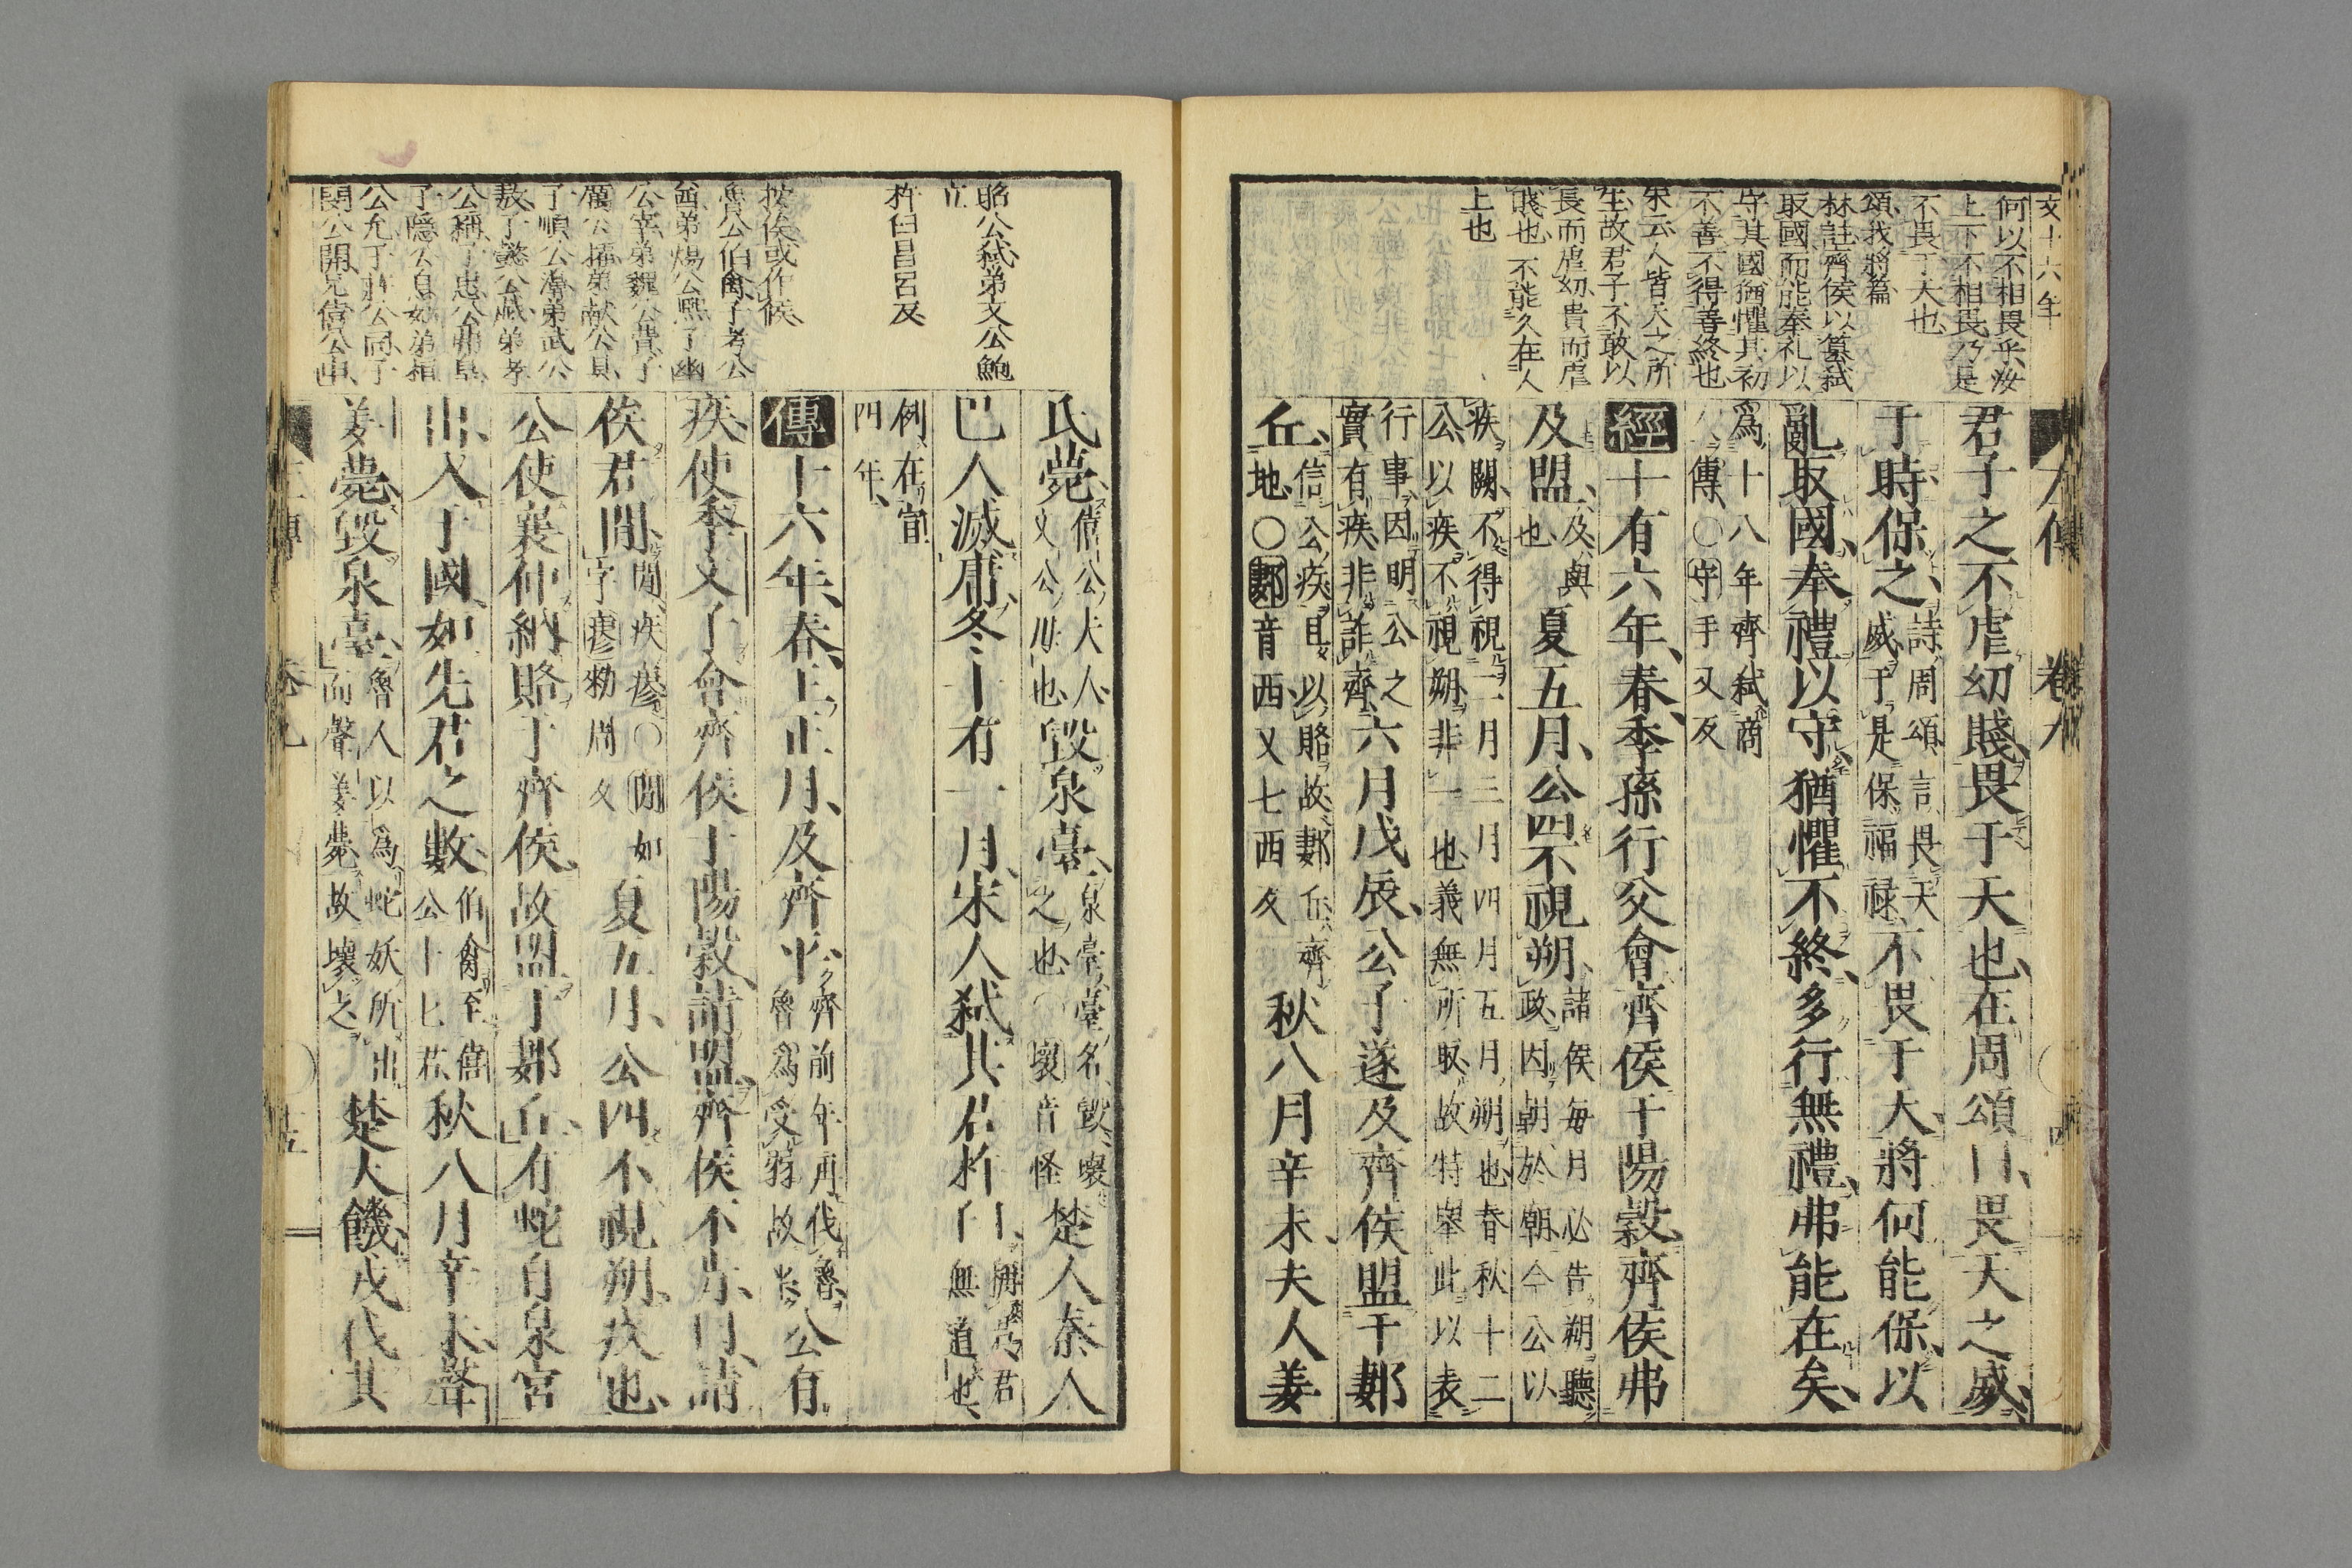 文十六年
何以不相畏乎汝
上下不相畏乃是
不畏于天也
頌我將篇
林註齊侯以簒弑
取國而能奉礼以
守其國猶懼其初
不善不得善終也
朱云人皆天之所
生故君子不敢以
長而虐幼貴而虐
賎也不能久在人
上也
左傳 卷九
君子之不虐幼賤畏于天也在周頌曰畏天之威
于時保之詩周頌言畏天
威于是保福禄不畏于天將何能保以
亂取國奉禮以守猶懼不終多行無禮弗能在矣
爲十八年齊弑商
人傳○守手又反
經十有六年春季孫行父會齊侯于陽穀齊侯弗
及盟及與
也夏五月公四不視朔諸侯毎月必告朔聽
政因朝於廟今公以
疾闕不得視二月三月四月五月朔也春秋十二
公以疾不視朔非一也義無所取故特舉此以表
行事因明公之
實有疾非詐齊六月戊辰公子遂及齊侯盟于郪
丘信公疾且以賂故郪丘齊
地○郪音西又七西反秋八月辛未夫人姜
昭公弑弟文公鮑
立
杵臼昌呂反
按侯或作候
魯公伯禽子考公
酋弟煬公熙子幽
公宰弟魏公㵒子
厲公擢弟献公具
子順公濞弟武公
敖子懿公戯弟孝
公稱子惠公弗皇
子隱公息姑弟桓
公允子莊公同子
閔公開兄僖公申
氏薨僖公夫人
文公母也毀泉臺泉臺臺名毀壞
之也○壞音怪楚人秦人
巴人滅庸冬十有一月宋人弑其君杵臼稱君君
無道也
例在宣
四年
傳十六年春王正月及齊平齊前年再伐魯
魯爲受弱故平公有
疾使季文子會齊侯于陽穀請盟齊侯不肯曰請
俟君間間疾瘳○間如
字瘳勑周反夏五月公四不視朔疾也
公使襄仲納賂于齊侯故盟于郪丘有蛇自泉宮
出入于國如先君之數伯禽至僖
公十七君秋八月辛未聲
姜薨毀泉臺魯人以爲蛇妖所出
而聲姜薨故壞之楚大饑戎伐其